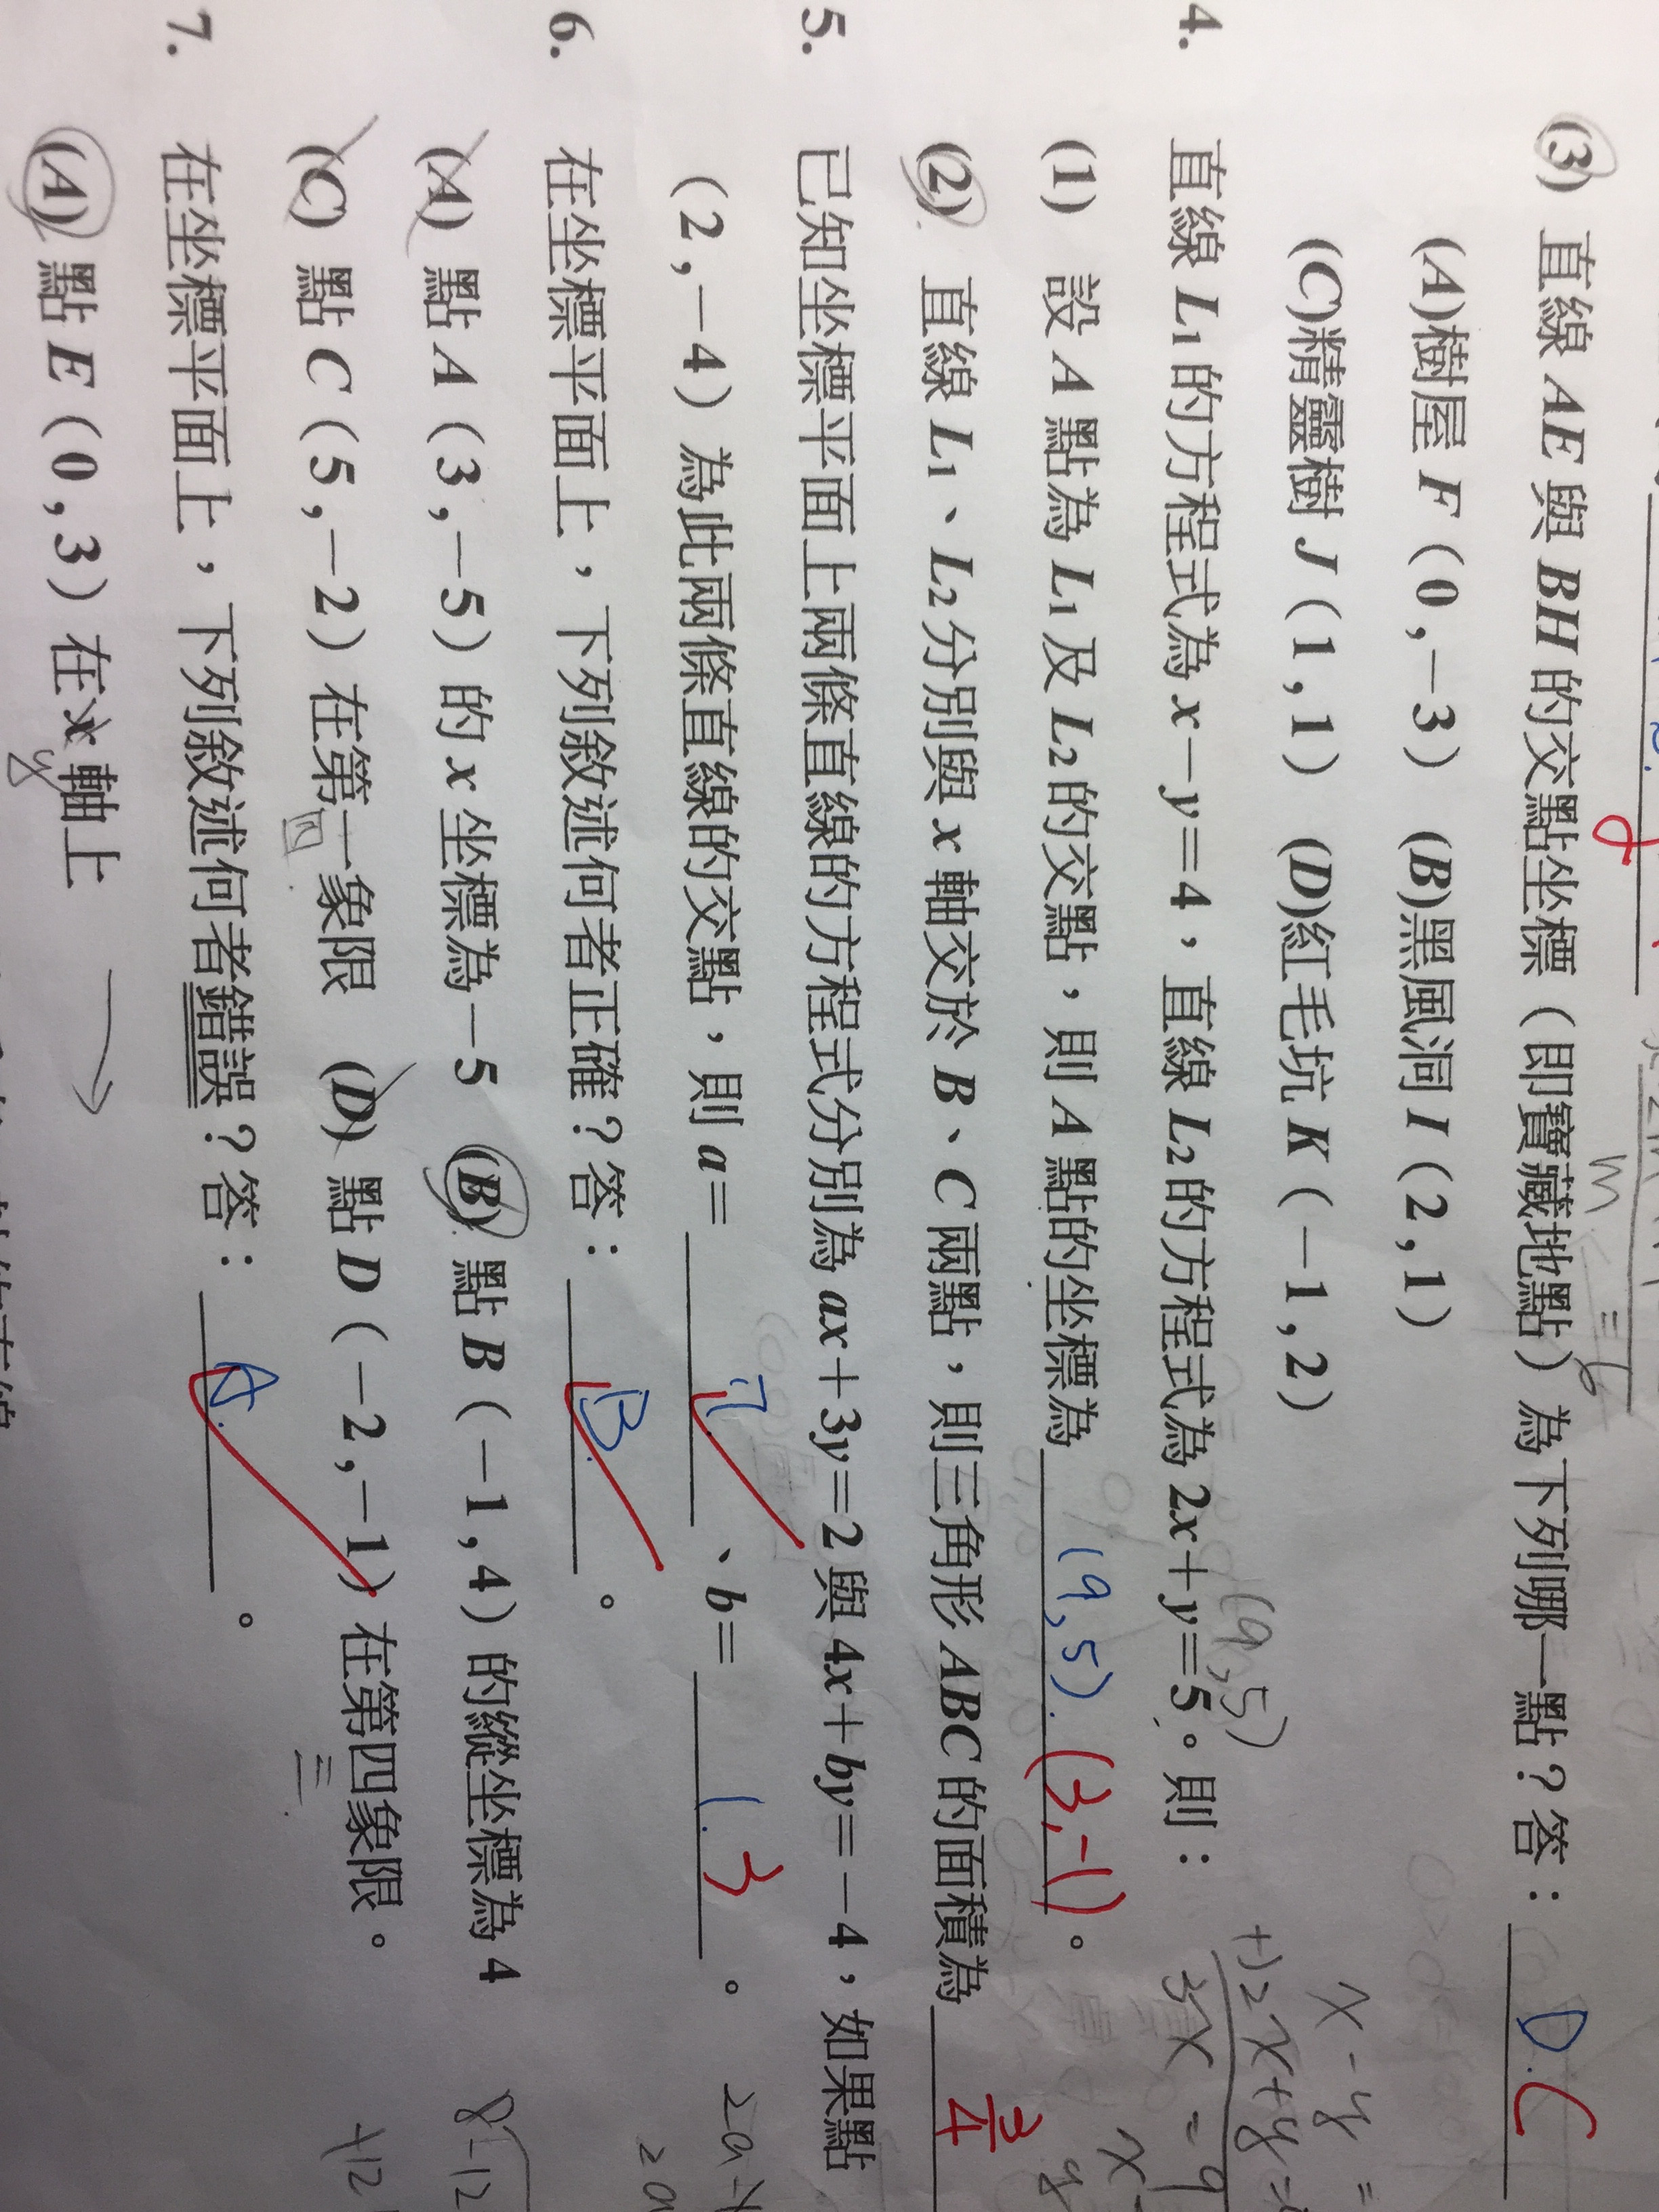 (3) 直線 AE 與 BH 的交點坐標（即寶藏地點）為下列哪一點？答： D. C
(A)樹屋 F（0,－3） (B)黑風洞 I（2,1）
(C)精靈樹 J（1,1） (D)紅毛坑 K（－1,2）
x - y =
+) 2x + y =
3x = 9
(9,5)
4. 直線 L₁ 的方程式為 x－y＝4，直線 L₂ 的方程式為 2x＋y＝5。則：
(1) 設 A 點為 L₁ 及 L₂ 的交點，則 A 點的坐標為 (9,5). (3,-1) 。
(2) 直線 L₁、L₂ 分別與 x 軸交於 B、C 兩點，則三角形 ABC 的面積為 3/4
5. 已知坐標平面上兩條直線的方程式分別為 ax＋3y＝2 與 4x＋by＝－4，如果點
（2,－4）為此兩條直線的交點，則 a＝ 7. 、b＝ 1. 3 。
6. 在坐標平面上，下列敘述何者正確？答： B. 。
(A) 點 A（3,－5）的 x 坐標為－5 (B) 點 B（－1,4）的縱坐標為 4
(C) 點 C（5,－2）在第一象限 (D) 點 D（－2,－1）在第四象限。
四
三
7. 在坐標平面上，下列敘述何者錯誤？答： A. 。
(A) 點 E（0,3）在 x 軸上
y